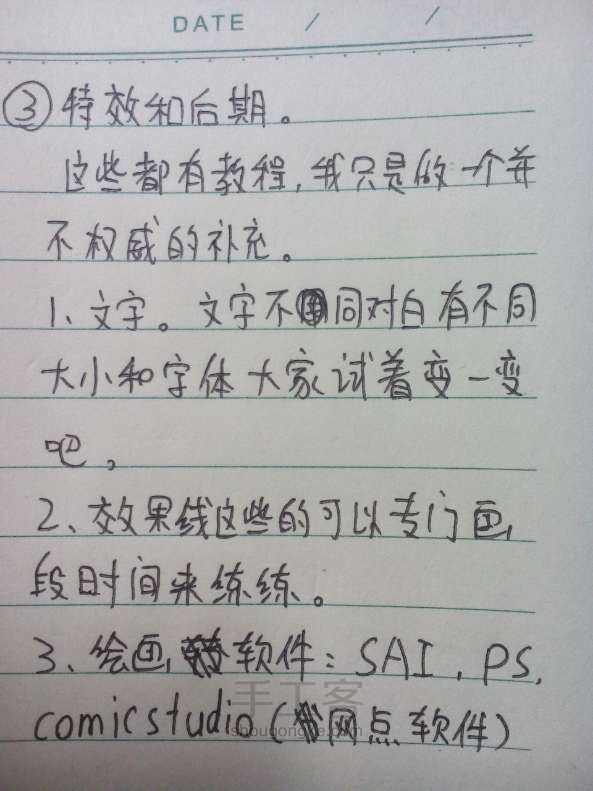 DATE / /
③特效和后期。
这些都有教程,我只是做一个并
不权威的补充。
1、文字。文字不同对白有不同
大小和字体大家试着变一变
吧。
2、效果线这些的可以专门画
段时间来练练。
3、绘画软件:SAI,PS,
comicstudio(网点软件)
手工客
shougongke.com